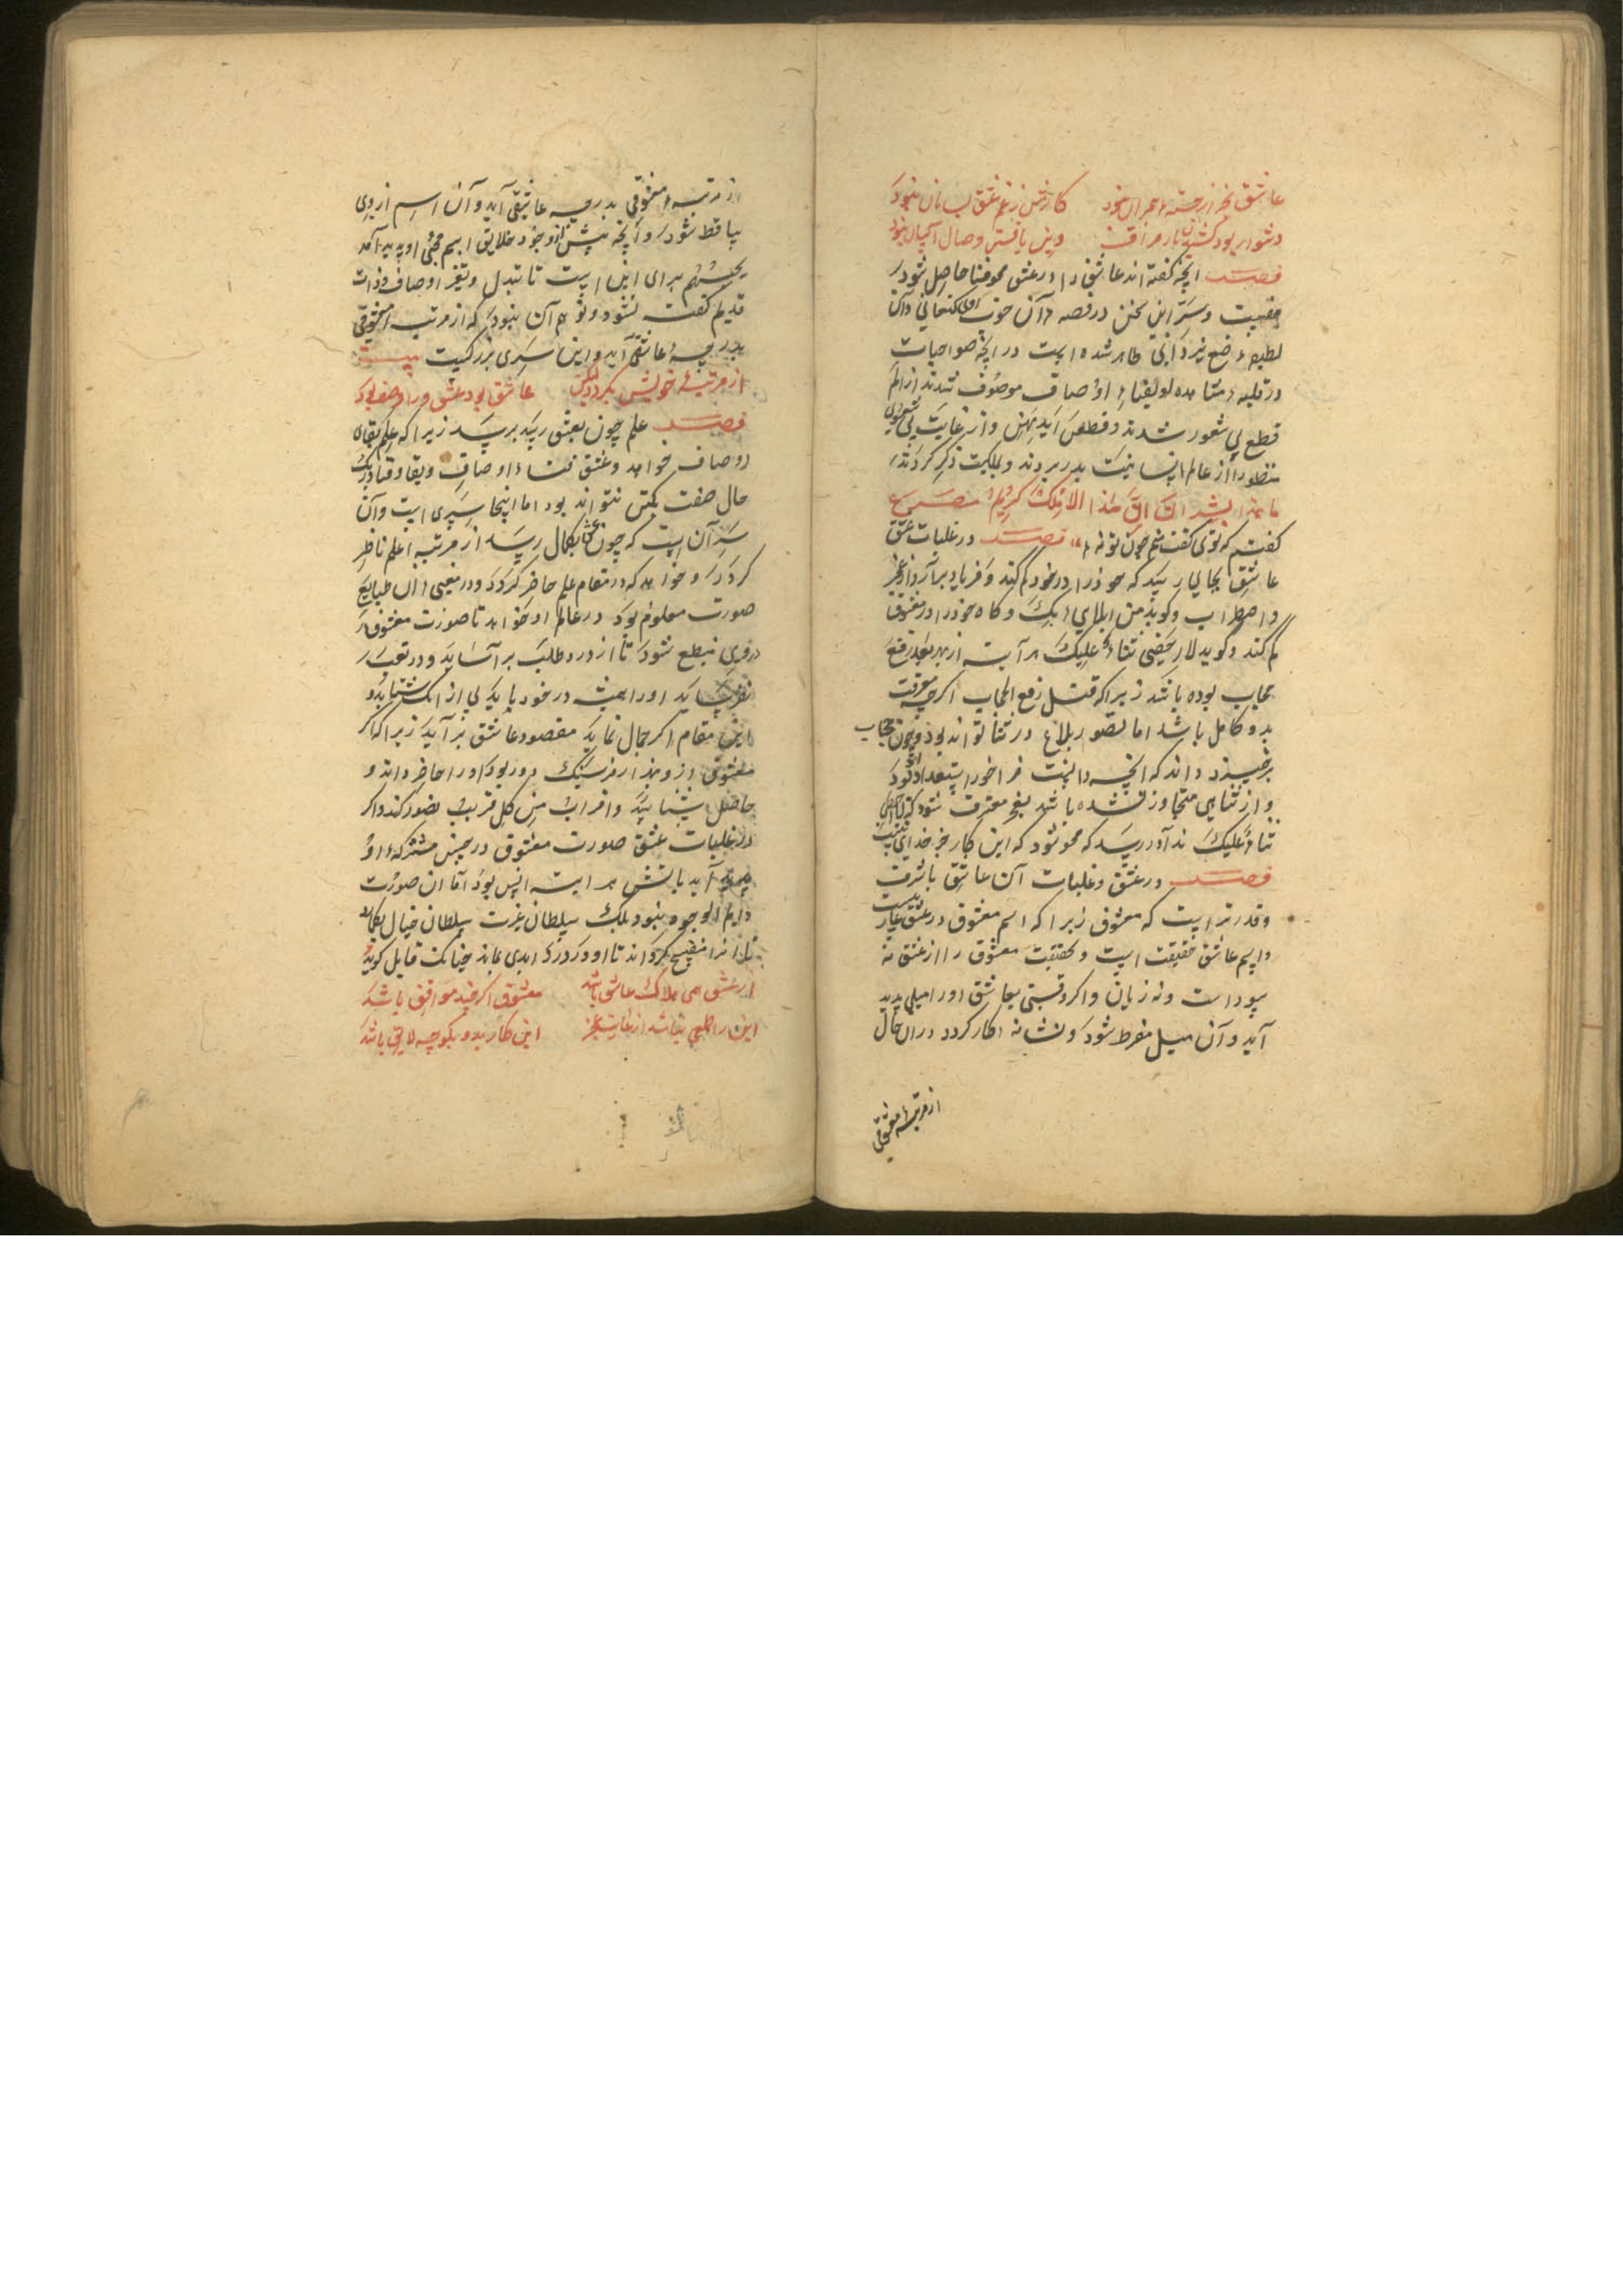 عاشق بجز از خسته هجران نبود کارش ز غم عشق بسامان نبود
دشوار بود کشیدن بار فراق وین یافتن وصال آسان نبود
فصل آنچه گفته‌اند عاشق را در عشق محو فنا حاصل شود
حقیقت و سر این سخن در قصه آن خوب روی کنعانی و آن
لطیفه صنع یزدانی ظاهر شده است در آنچه صواحبات
در غلبه مشاهده او بفناء اوصاف موصوف شدند از الم
قطع بی شعور شدند و قطعن ایدیهن و از غایت بی شعوری
منظور را از عالم انسانیت بدر بردند و بملکیت ذکر کردند
ما هذا بشرا ان هذا الا ملک کریم مصرع
گفتم که توی گفت منم چون تو نه فصل در غلبات عشق
عاشق بجائی رسد که خود را در خود گم کند و فریاد برآرد از عجز
و اضطراب و گوید من این لی ابک و گاه خود را در معشوق
گم کند و گوید لا احصی ثناء علیک هر آینه از بهر بعد رفع
حجاب بوده باشد زیرا که قبل رفع الحجاب اگرچه معرفت
بدو کامل باشد اما تصور بلاغ در ثنا تواند بود و چون حجاب
برخیزد داند که آنچه دانست فراخور استعداد او بود
و از تناهی متجاوز نشده باشد بعجز معترف شود که لا احصی
ثناء علیک ندا در رسد که محو شود که این کار بجز خدای نیست
فصل در عشق و غلبات آن عاشق باشرف
و قدرتر است که معشوق زیرا که اسم معشوق در عشق عاریتست
و اسم عاشق حقیقت است و بحقیقت معشوق را از عشق نه
سود است و نه زیان و اگر وقتی بعاشق او را میلی پدید
آید و آن میل مفرط شود و نشانه کار گردد در آن حال
از مرتبه معشوقی
از مرتبه معشوقی بدرجه عاشقی آید و آن اسم از وی
ساقط شود و آنچه پیش از وجود خلایق اسم محبی او پدید آمد
یحبهم برای این است تا تبدل و تغیر اوصاف ذات
قدیم گفت نشود و توهم آن نبود که از مرتبه معشوقی
بدرجه عاشقی آید و این سری بزرگست بیت
از مرتبه خویش بگردد لیکن عاشق بود و عشق ورا وصف بود
فصل علم چون بعشق رسد برسد زیرا که علم بقای
اوصاف خواهد و عشق فناء اوصاف و بقا و فنا در یک
حال صفت یکتن نتواند بود اما اینجا سری است و آن
سر آن است که چون عشق بکمال رسد از مرتبه علم ناظر
گردد و خواهد که در مقام علم حاضر گردد و در معنی آن طبایع
صورت معلوم بود در عالم او خواهد تا صورت معشوق
در وی منطبع شود تا از درد طلب برآساید و در تعب
نفرساید او را همیشه در خود یابد بی از آنک شتابد و
این مقام اگر جمال نماید مقصود عاشق برآید زیرا که اگر
معشوق ازو هزار فرسنگ دور بود او را حاضر داند و
حاصل شناسد و اقرب من کل قریب تصور کند و اگر
در غلبات عشق صورت معشوق در حس مشترک او
پدید آید باتش هر آینه انس بود اما آن صورت
دایم الوجود نبود بلک سلطان غیرت سلطان خیال بگمارد
تا آنرا منفسح گرداند تا او در درد ابدی بماند چنانک قایل گوید
از عشق همی هلاک عاشق باشد معشوق اگر چند موافق باشد
این را طلبی نباشد از غایت عجز این کار بدو بگو چه لایق باشد